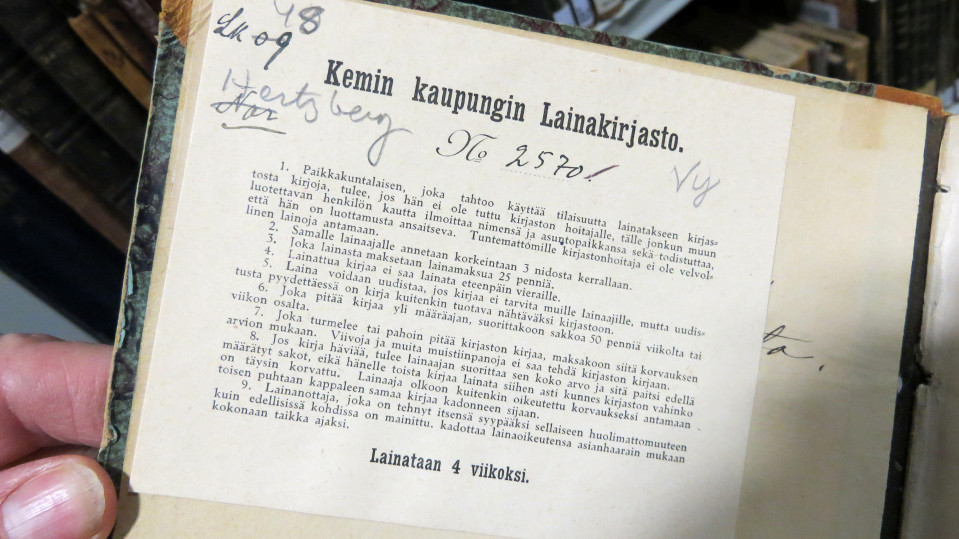 48
Lk 09
Hertzberg
Kemin kaupungin Lainakirjasto.
No 2570.
1. Paikkakuntalaisen, joka tahtoo käyttää tilaisuutta lainatakseen kirjas-
tosta kirjoja, tulee, jos hän ei ole tuttu kirjaston hoitajalle, tälle jonkun muun
luotettavan henkilön kautta ilmoittaa nimensä ja asuntopaikkansa sekä todistuttaa,
että hän on luottamusta ansaitseva. Tuntemattomille kirjastonhoitaja ei ole velvol-
linen lainoja antamaan.
2. Samalle lainaajalle annetaan korkeintaan 3 nidosta kerrallaan.
3. Joka lainasta maksetaan lainamaksua 25 penniä.
4. Lainattua kirjaa ei saa lainata eteenpäin vieraille.
5. Laina voidaan uudistaa, jos kirjaa ei tarvita muille lainaajille, mutta uudis-
tusta pyydettäessä on kirja kuitenkin tuotava nähtäväksi kirjastoon.
6. Joka pitää kirjaa yli määräajan, suorittakoon sakkoa 50 penniä viikolta tai
viikon osalta.
7. Joka turmelee tai pahoin pitää kirjaston kirjaa, maksakoon siitä korvauksen
arvion mukaan. Viivoja ja muita muistiinpanoja ei saa tehdä kirjaston kirjaan.
8. Jos kirja häviää, tulee lainaajan suorittaa sen koko arvo ja sitä paitsi edellä
määrätyt sakot, eikä hänelle toista kirjaa lainata siihen asti kunnes kirjaston vahinko
on täysin korvattu. Lainaaja olkoon kuitenkin oikeutettu korvaukseksi antamaan
toisen puhtaan kappaleen samaa kirjaa kadonneen sijaan.
9. Lainanottaja, joka on tehnyt itsensä syypääksi sellaiseen huolimattomuuteen
kuin edellisissä kohdissa on mainittu, kadottaa lainaoikeutensa asianhaarain mukaan
kokonaan taikka ajaksi.
Lainataan 4 viikoksi.